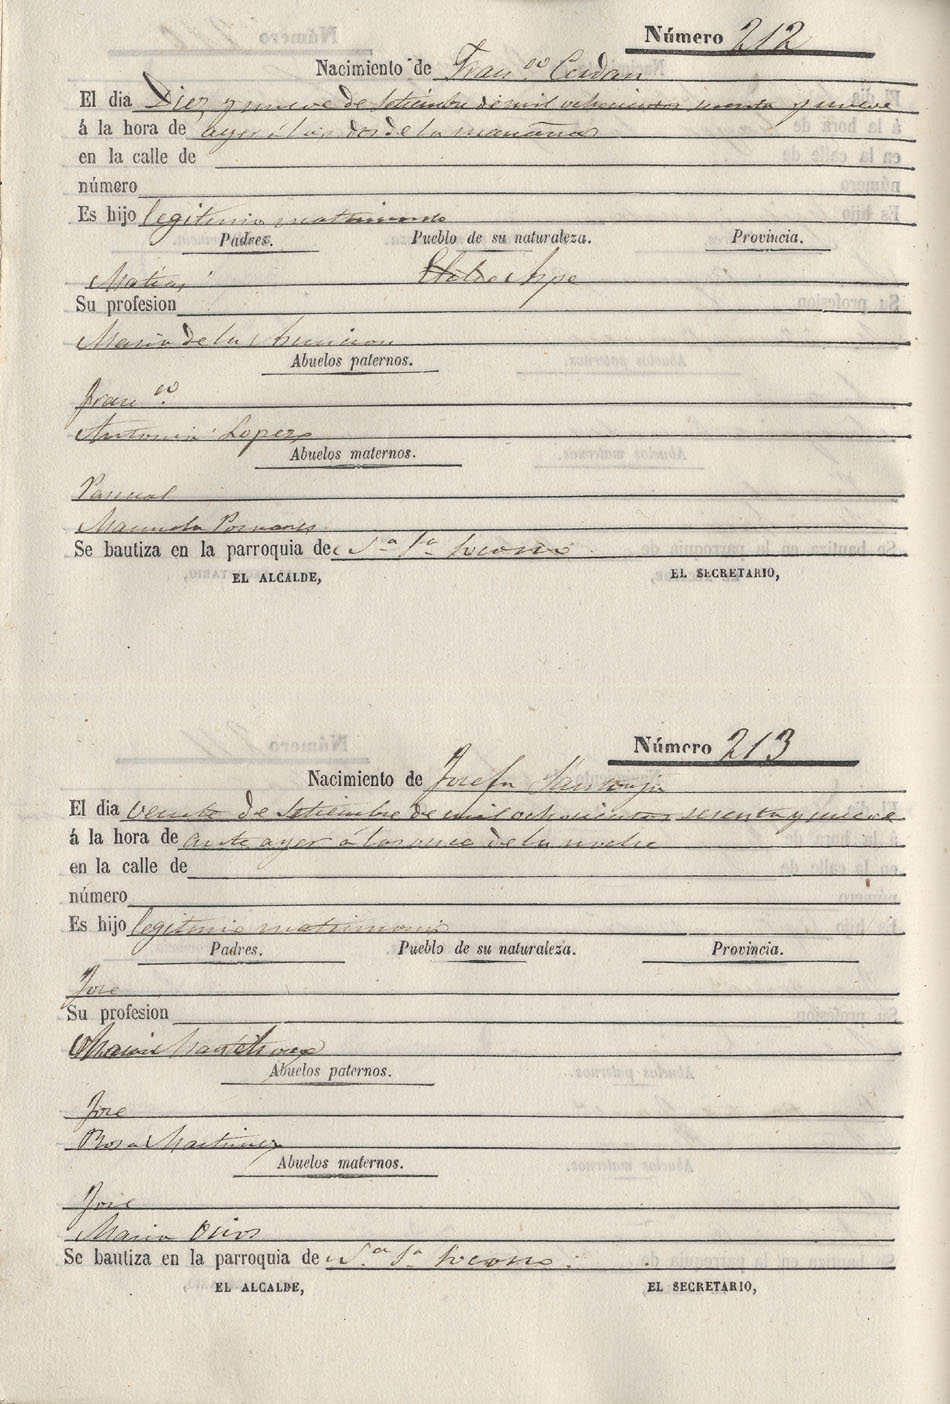 Número 212
Nacimiento de Fran.co Cerdan
El dia Diez y nueve de Setiembre de mil ochocientos sesenta y nueve
á la hora de ayer á las dos de la mañana
en la calle de
número
Es hijo legitimo matrimonio
Padres. Pueblo de su naturaleza. Provincia.
Matias Aspe
Su profesion
Maria de la Asuncion
Abuelos paternos.
Fran.co
Antonia Lopez
Abuelos maternos.
Pascual
Manuela Pomares
Se bautiza en la parroquia de N.a S.a Socorro
EL ALCALDE, EL SECRETARIO,
Número 213
Nacimiento de Josefa
El dia veinte de Setiembre de mil ochocientos sesenta y nueve
á la hora de ante ayer á las once de la noche
en la calle de
número
Es hijo legitimo matrimonio
Padres. Pueblo de su naturaleza. Provincia.
Jose
Su profesion
Maria Martinez
Abuelos paternos.
Jose
Rosa Martinez
Abuelos maternos.
Jose
Maria
Se bautiza en la parroquia de N.a S.a Socorro.
EL ALCALDE, EL SECRETARIO,